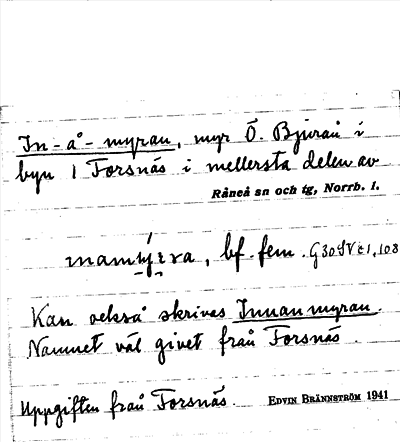 In-å-myran, myr Ö. Bjurån i
byn 1 Forsnäs i mellersta delen av
Råneå sn och tg, Norrb. l.
bf. fem.
Kan också skrivas Innanmyran.
Namnet väl givet från Forsnäs.
Uppgiften från Forsnäs. EDVIN BRÄNNSTRÖM 1941